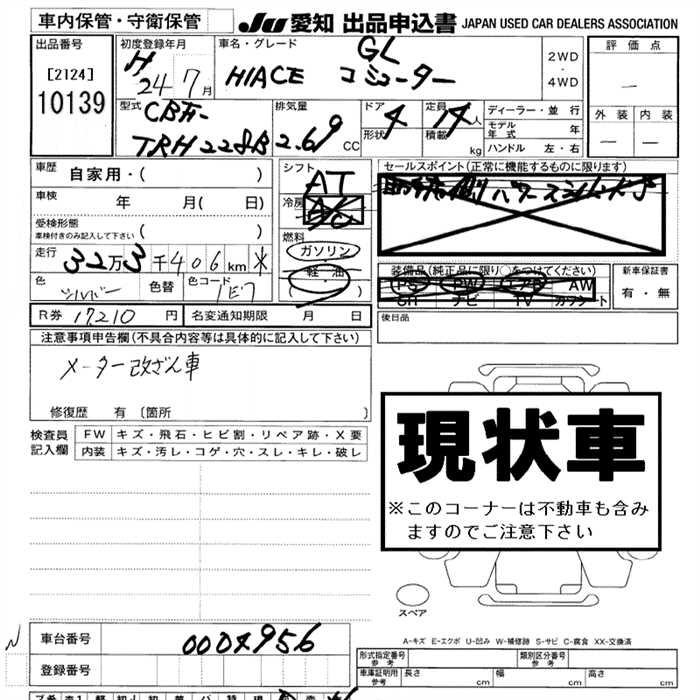 車内保管・守衛保管
JU 愛知 出品申込書 JAPAN USED CAR DEALERS ASSOCIATION
出品番号
[2124]
10139
初度登録年月
H 24年 7月
車名・グレード
GL
HIACE コミューター
2WD
・
4WD
評価点
—
外装 内装
— —
型式
CBF-
TRH228B
排気量
2.69 CC
ドア 4
形状
定員 14人
積載 kg
ディーラー・並行
モデル年式 年
ハンドル 左・右
車歴
自家用・( )
車検
年 月( 日)
受検形態
車検付きのみ記入して下さい ( )
走行
32万3千406km *
色 シルバー 色替 色コード 1E7
シフト
AT
冷房
A/C
燃料
ガソリン
軽・油
( )
セールスポイント(正常に機能するものに限ります)
装備品(純正品に限り○をつけてください)
PS PW エアB AW
SR ナビ TV カワシート
新車保証書
有・無
R券 17,210円 名変通知期限 月 日
後日品
注意事項申告欄(不具合内容等は具体的に記入して下さい)
メーター改ざん車
修復歴 有 〔箇所 〕
検査員
記入欄
FW キズ・飛石・ヒビ割・リペア跡・X要
内装 キズ・汚レ・コゲ・穴・スレ・キレ・破レ
現状車
※このコーナーは不動車も含み
ますのでご注意下さい
スペア
A-キズ E-エクボ U-凹み W-補修跡 S-サビ C-腐食 XX-交換済
車台番号
登録番号
形式指定番号
参考
類別区分番号
参考
車庫証明用
参考
長さ cm 幅 cm 高さ cm